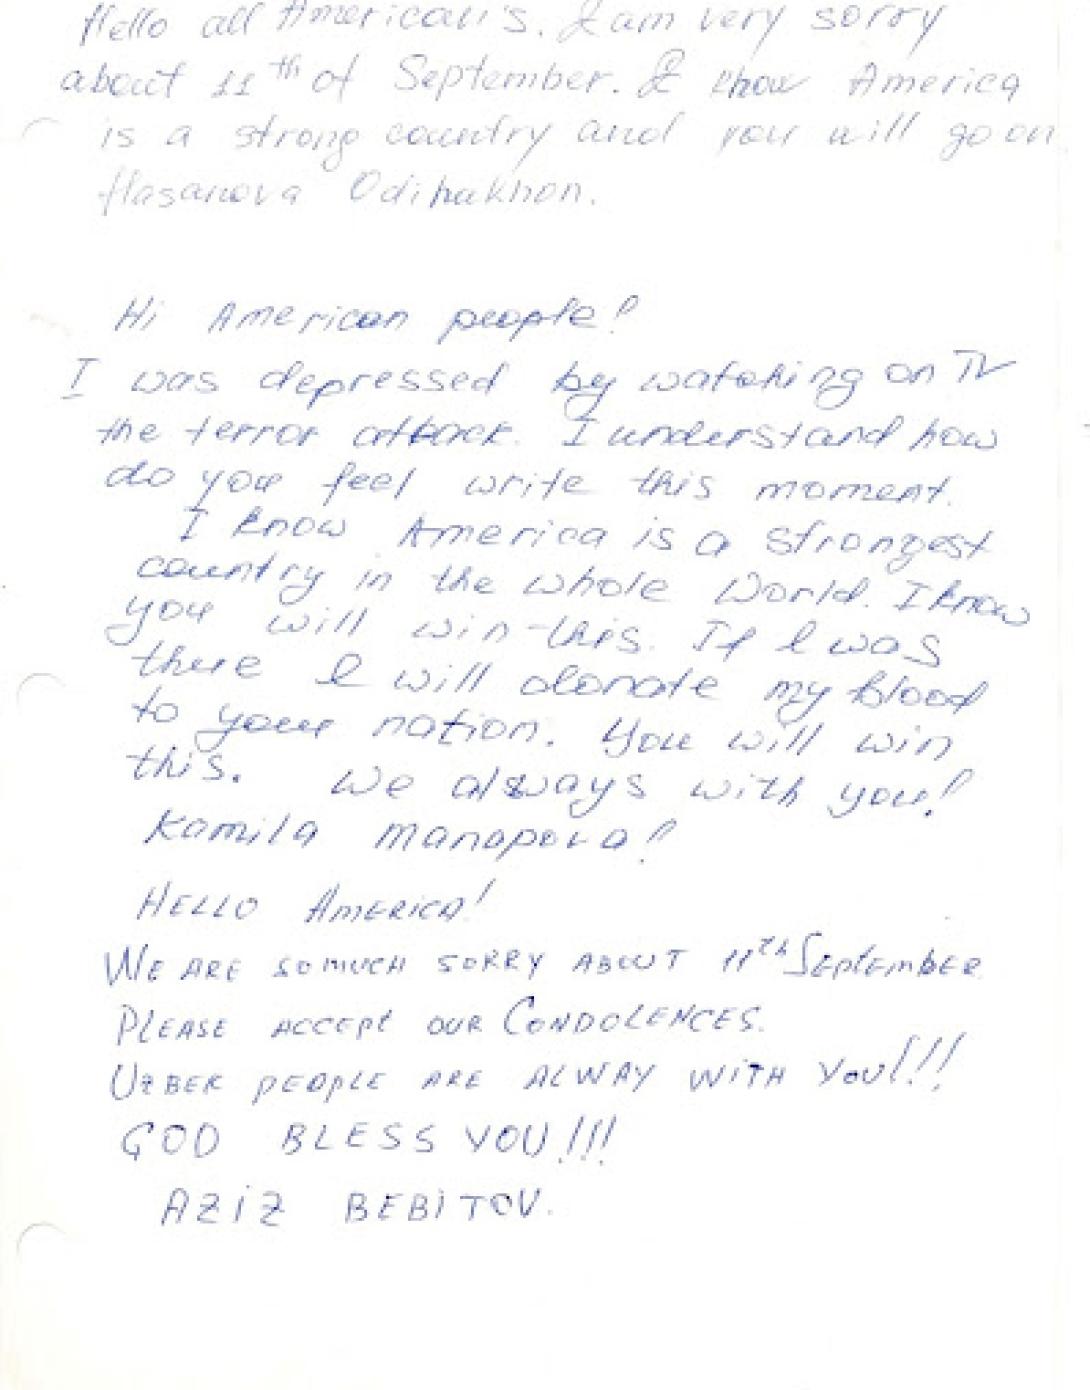 Hello all Americans. I am very sorry
about 11th of September. I know America
is a strong country and you will go on
Hasanova Odinakhon.
Hi American people!
I was depressed by watching on TV
the terror attack. I understand how
do you feel write this moment.
I know America is a strongest
country in the whole World. I know
you will win this. If I was
there I will donate my blood
to your nation. You will win
this. We always with you!
Kamila Manapova!
HELLO AMERICA!
WE ARE SO MUCH SORRY ABOUT 11th SEPTEMBER
PLEASE ACCEPT OUR CONDOLENCES.
UZBEK PEOPLE ARE ALWAY WITH YOU!!!
GOD BLESS YOU!!!
AZIZ BEBITOV.